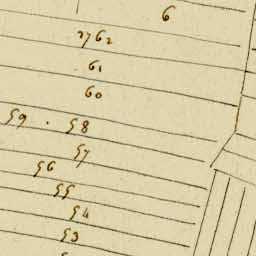 6
2762
61
60
59 . 58
57
56
55
54
53